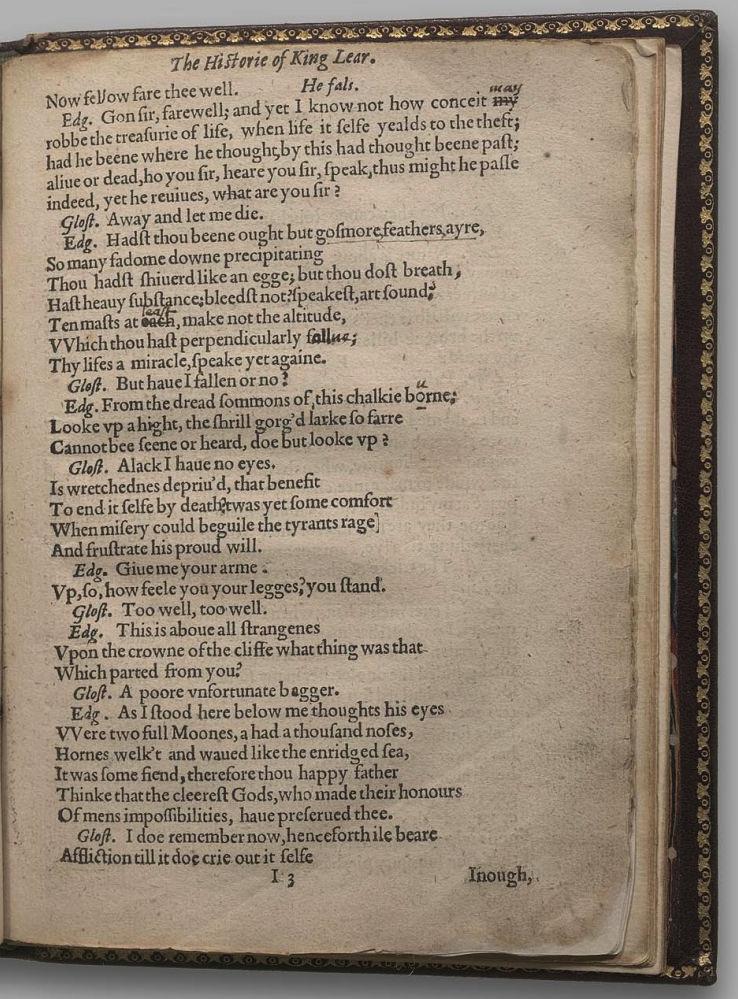 The Historie of King Lear.
Now fellow fare thee well. He fals.
may
Edg. Gon sir, farewell; and yet I know not how conceit my
robbe the treasurie of life, when life it selfe yealds to the theft;
had he beene where he thought,by this had thought beene past;
aliue or dead,ho you sir, heare you sir, speak,thus might he passe
indeed, yet he reuiues, what are you sir?
Glost. Away and let me die.
Edg. Hadst thou beene ought but gosmore,feathers,ayre,
So many fadome downe precipitating
Thou hadst shiuerd like an egge; but thou dost breath,
Hast heauy substance;bleedst not?speakest,art sound;
least
Ten masts at each, make not the altitude,
VVhich thou hast perpendicularly fallne;
Thy lifes a miracle,speake yet againe.
Glost. But haue I fallen or no?
u
Edg. From the dread sommons of, this chalkie borne;
Looke vp a hight, the shrill gorg'd larke so farre
Cannot bee seene or heard, doe but looke vp?
Glost. Alack I haue no eyes.
Is wretchednes depriu'd, that benefit
To end it selfe by death?twas yet some comfort
When misery could beguile the tyrants rage]
And frustrate his proud will.
Edg. Giue me your arme.
Vp,so, how feele you your legges;?you stand.
Glost. Too well, too well.
Edg. This is aboue all strangenes
Vpon the crowne of the cliffe what thing was that
Which parted from you?
Glost. A poore vnfortunate bagger.
Edg. As I stood here below me thoughts his eyes
VVere two full Moones, a had a thousand noses,
Hornes welk't and waued like the enridged sea,
It was some fiend, therefore thou happy father
Thinke that the cleerest Gods, who made their honours
Of mens impossibilities, haue preserued thee.
Glost. I doe remember now, henceforth ile beare
Affliction till it doe crie out it selfe
I 3 Inough,